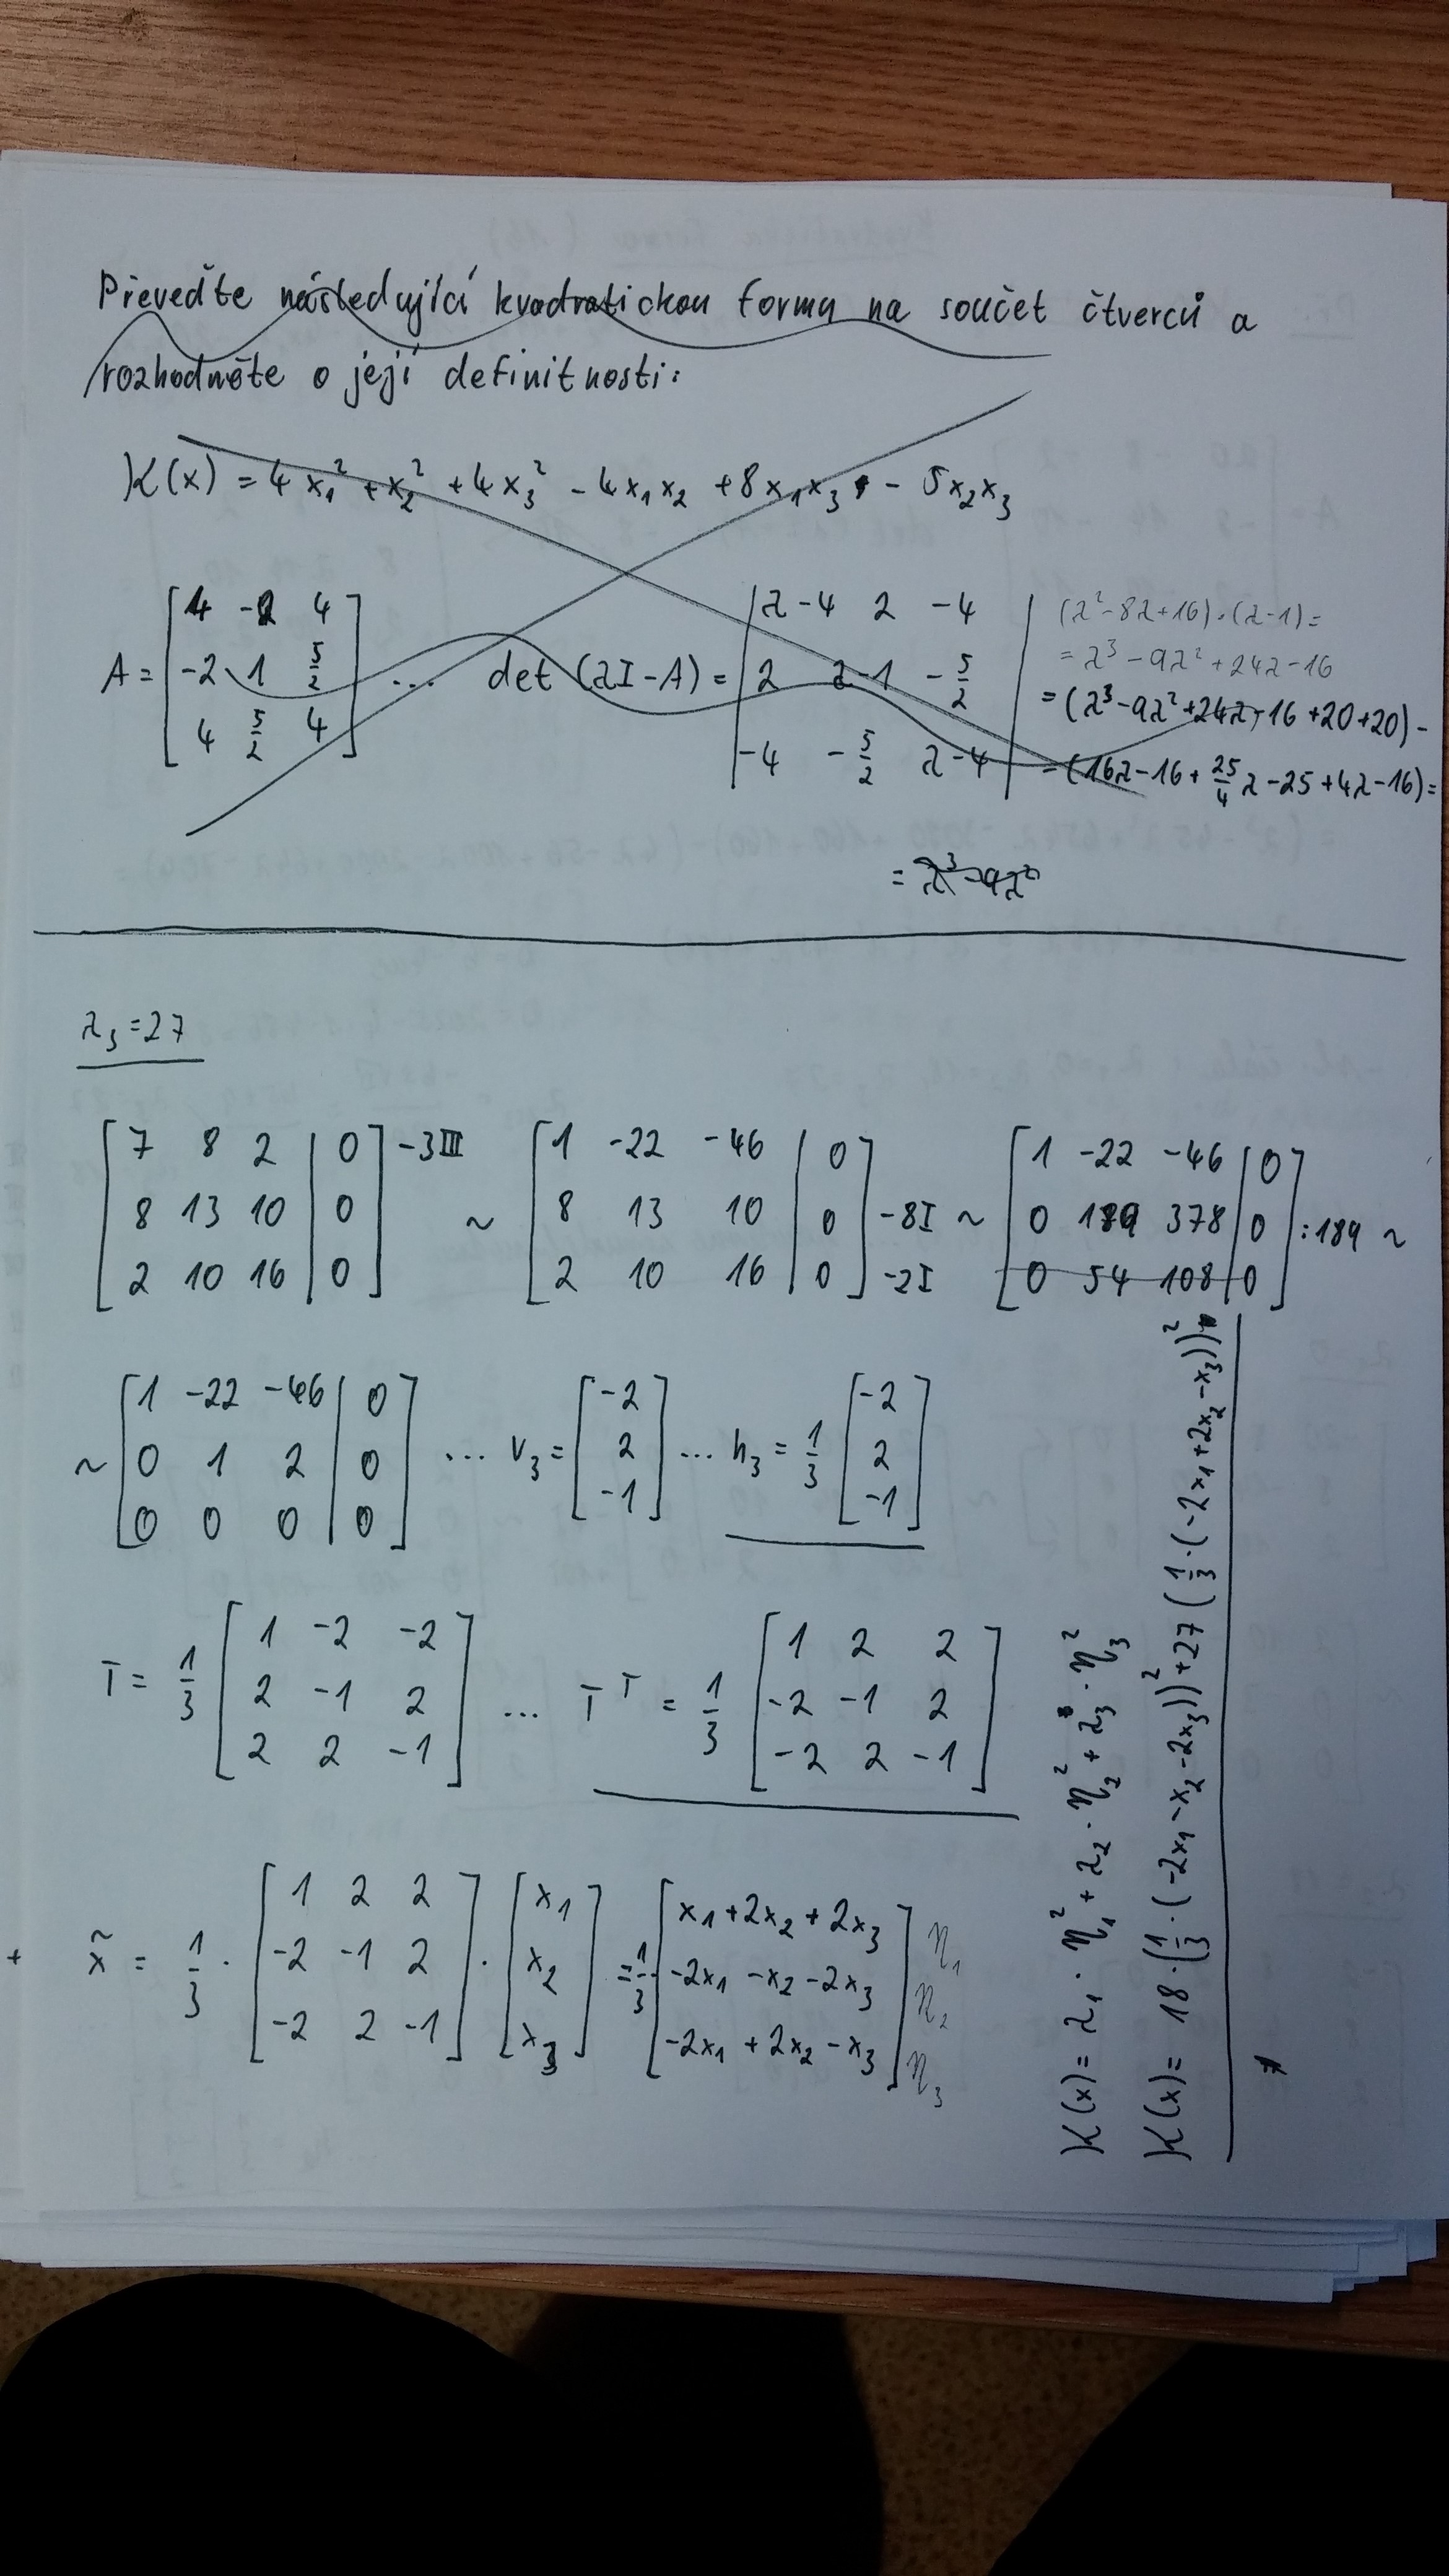 Převeďte následující kvadratickou formu na součet čtverců a
rozhodněte o její definitnosti:
K(x) = 4x₁² + x₂² + 4x₃² - 4x₁x₂ + 8x₁x₃ - 5x₂x₃
A = [4 -2 4; -2 1 5/2; 4 5/2 4] ... det (λI-A) = |λ-4 2 -4; 2 λ-1 -5/2; -4 -5/2 λ-4|
(λ²-8λ+16)·(λ-1) =
= λ³-9λ²+24λ-16
= (λ³-9λ²+24λ-16+20+20) -
-(16λ-16+25/4λ-25+4λ-16) =
= λ³-9λ²
λ₃=27
[7 8 2 | 0; 8 13 10 | 0; 2 10 16 | 0] -3III ~ [1 -22 -46 | 0; 8 13 10 | 0; 2 10 16 | 0] -8I -2I ~ [1 -22 -46 | 0; 0 189 378 | 0; 0 54 108 | 0] :189 ~
~ [1 -22 -46 | 0; 0 1 2 | 0; 0 0 0 | 0] ... v₃ = [-2; 2; -1] ... h₃ = 1/3 [-2; 2; -1]
T = 1/3 [1 -2 -2; 2 -1 2; 2 2 -1] ... Tᵀ = 1/3 [1 2 2; -2 -1 2; -2 2 -1]
+ x̃ = 1/3 · [1 2 2; -2 -1 2; -2 2 -1] · [x₁; x₂; x₃] = 1/3 [x₁+2x₂+2x₃; -2x₁-x₂-2x₃; -2x₁+2x₂-x₃] η₁ η₂ η₃
K(x) = λ₁·η₁² + λ₂·η₂² + λ₃·η₃²
K(x) = 18·(1/3·(-2x₁-x₂-2x₃))² + 27(1/3·(-2x₁+2x₂-x₃))²